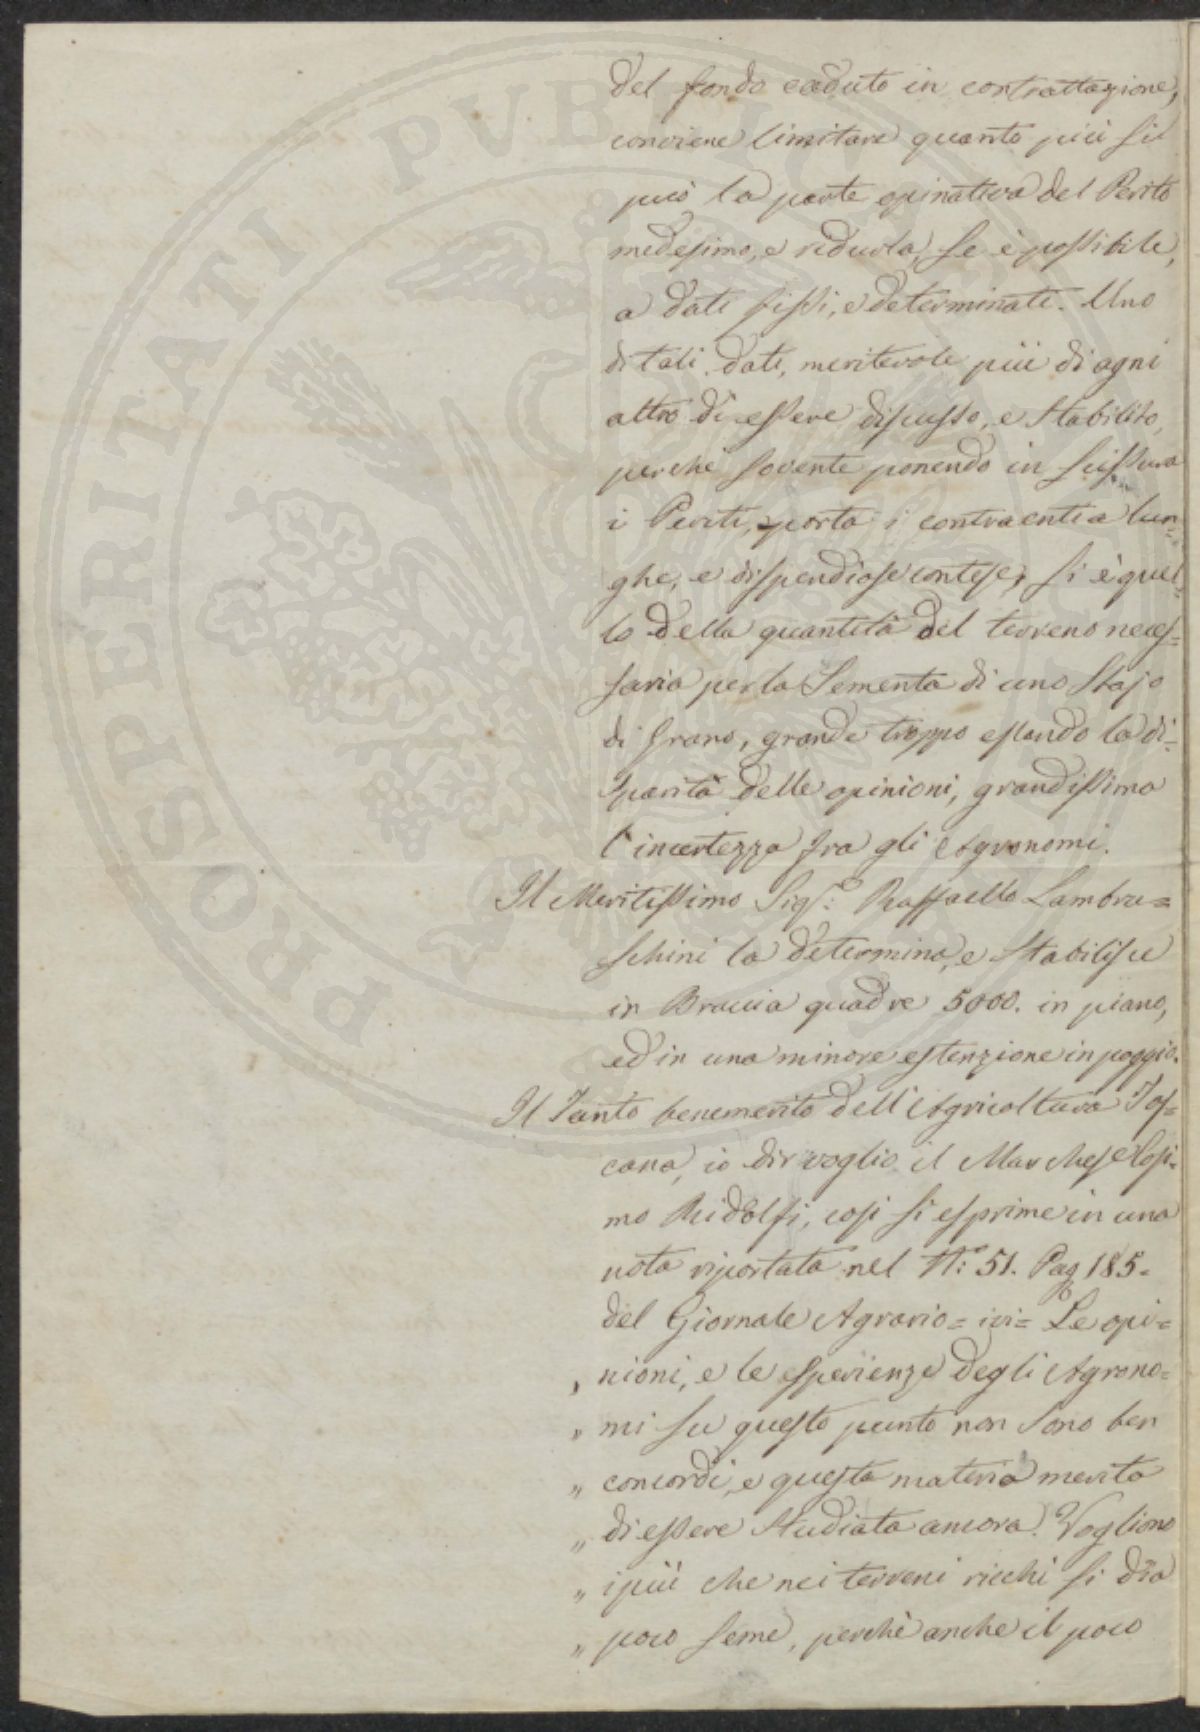 del fondo caduto in contrattazione,
conviene limitare quanto più si
può la parte opinativa del Perito
medesimo, e ridurla, se è possibile,
a dati fissi, e determinati. Uno
di tali dati, meritevole più di ogni
altro di essere discusso, e stabilito,
perchè sovente ponendo in scissura
i Periti, porta i contraenti a lun=
ghe, e dispendiose contese, si è quel=
lo della quantità del terreno neces=
saria per la Sementa di uno Stajo
di Grano, grande troppo essendo la di=
sparità delle opinioni, grandissima
l'incertezza fra gli Agronomi.
Il Meritissimo Sigr: Raffaello Lambru=
schini la determina, e stabilisce
in Braccia quadre 5000. in piano,
ed in una minore estenzione in poggio.
Il Tanto benemerito dell'Agricoltura Tos=
cana, io dir voglio il Marchese Cosi=
mo Ridolfi, così si esprime in una
nota riportata nel N:° 51. Pag 185.
del Giornale Agrario = ivi = Le opi=
„ nioni, e le esperienze degli Agrono=
„ mi su questo punto non sono ben
„ concordi, e questa materia merita
„ di essere studiata ancora. Vogliono
„ i più che nei terreni ricchi si dia
„ poco seme, perchè anche il poco
PROSPERITATI PUBLICAE